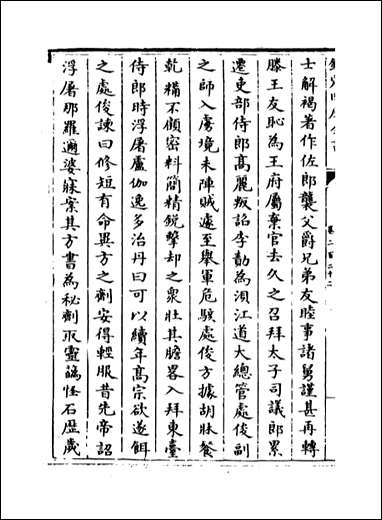 欽定四庫全書
卷二百二十二
士解褐著作佐郎襲父爵兄弟友睦事諸舅謹甚再轉
滕王友恥為王府屬棄官去久之召拜太子司議郎累
遷吏部侍郎高麗叛詔李勣為浿江道大總管處俊副
之師入虜境未陣賊遽至舉軍危駭處俊方據胡牀餐
乾糒不顧密料簡精銳擊却之衆壯其膽畧入拜東臺
侍郎時浮屠盧伽逸多治丹曰可以續年高宗欲遂餌
之處俊諫曰修短有命異方之劑安得輕服昔先帝詔
浮屠那羅邇婆寐案其方書為秘劑取靈蘤怪石歷歲